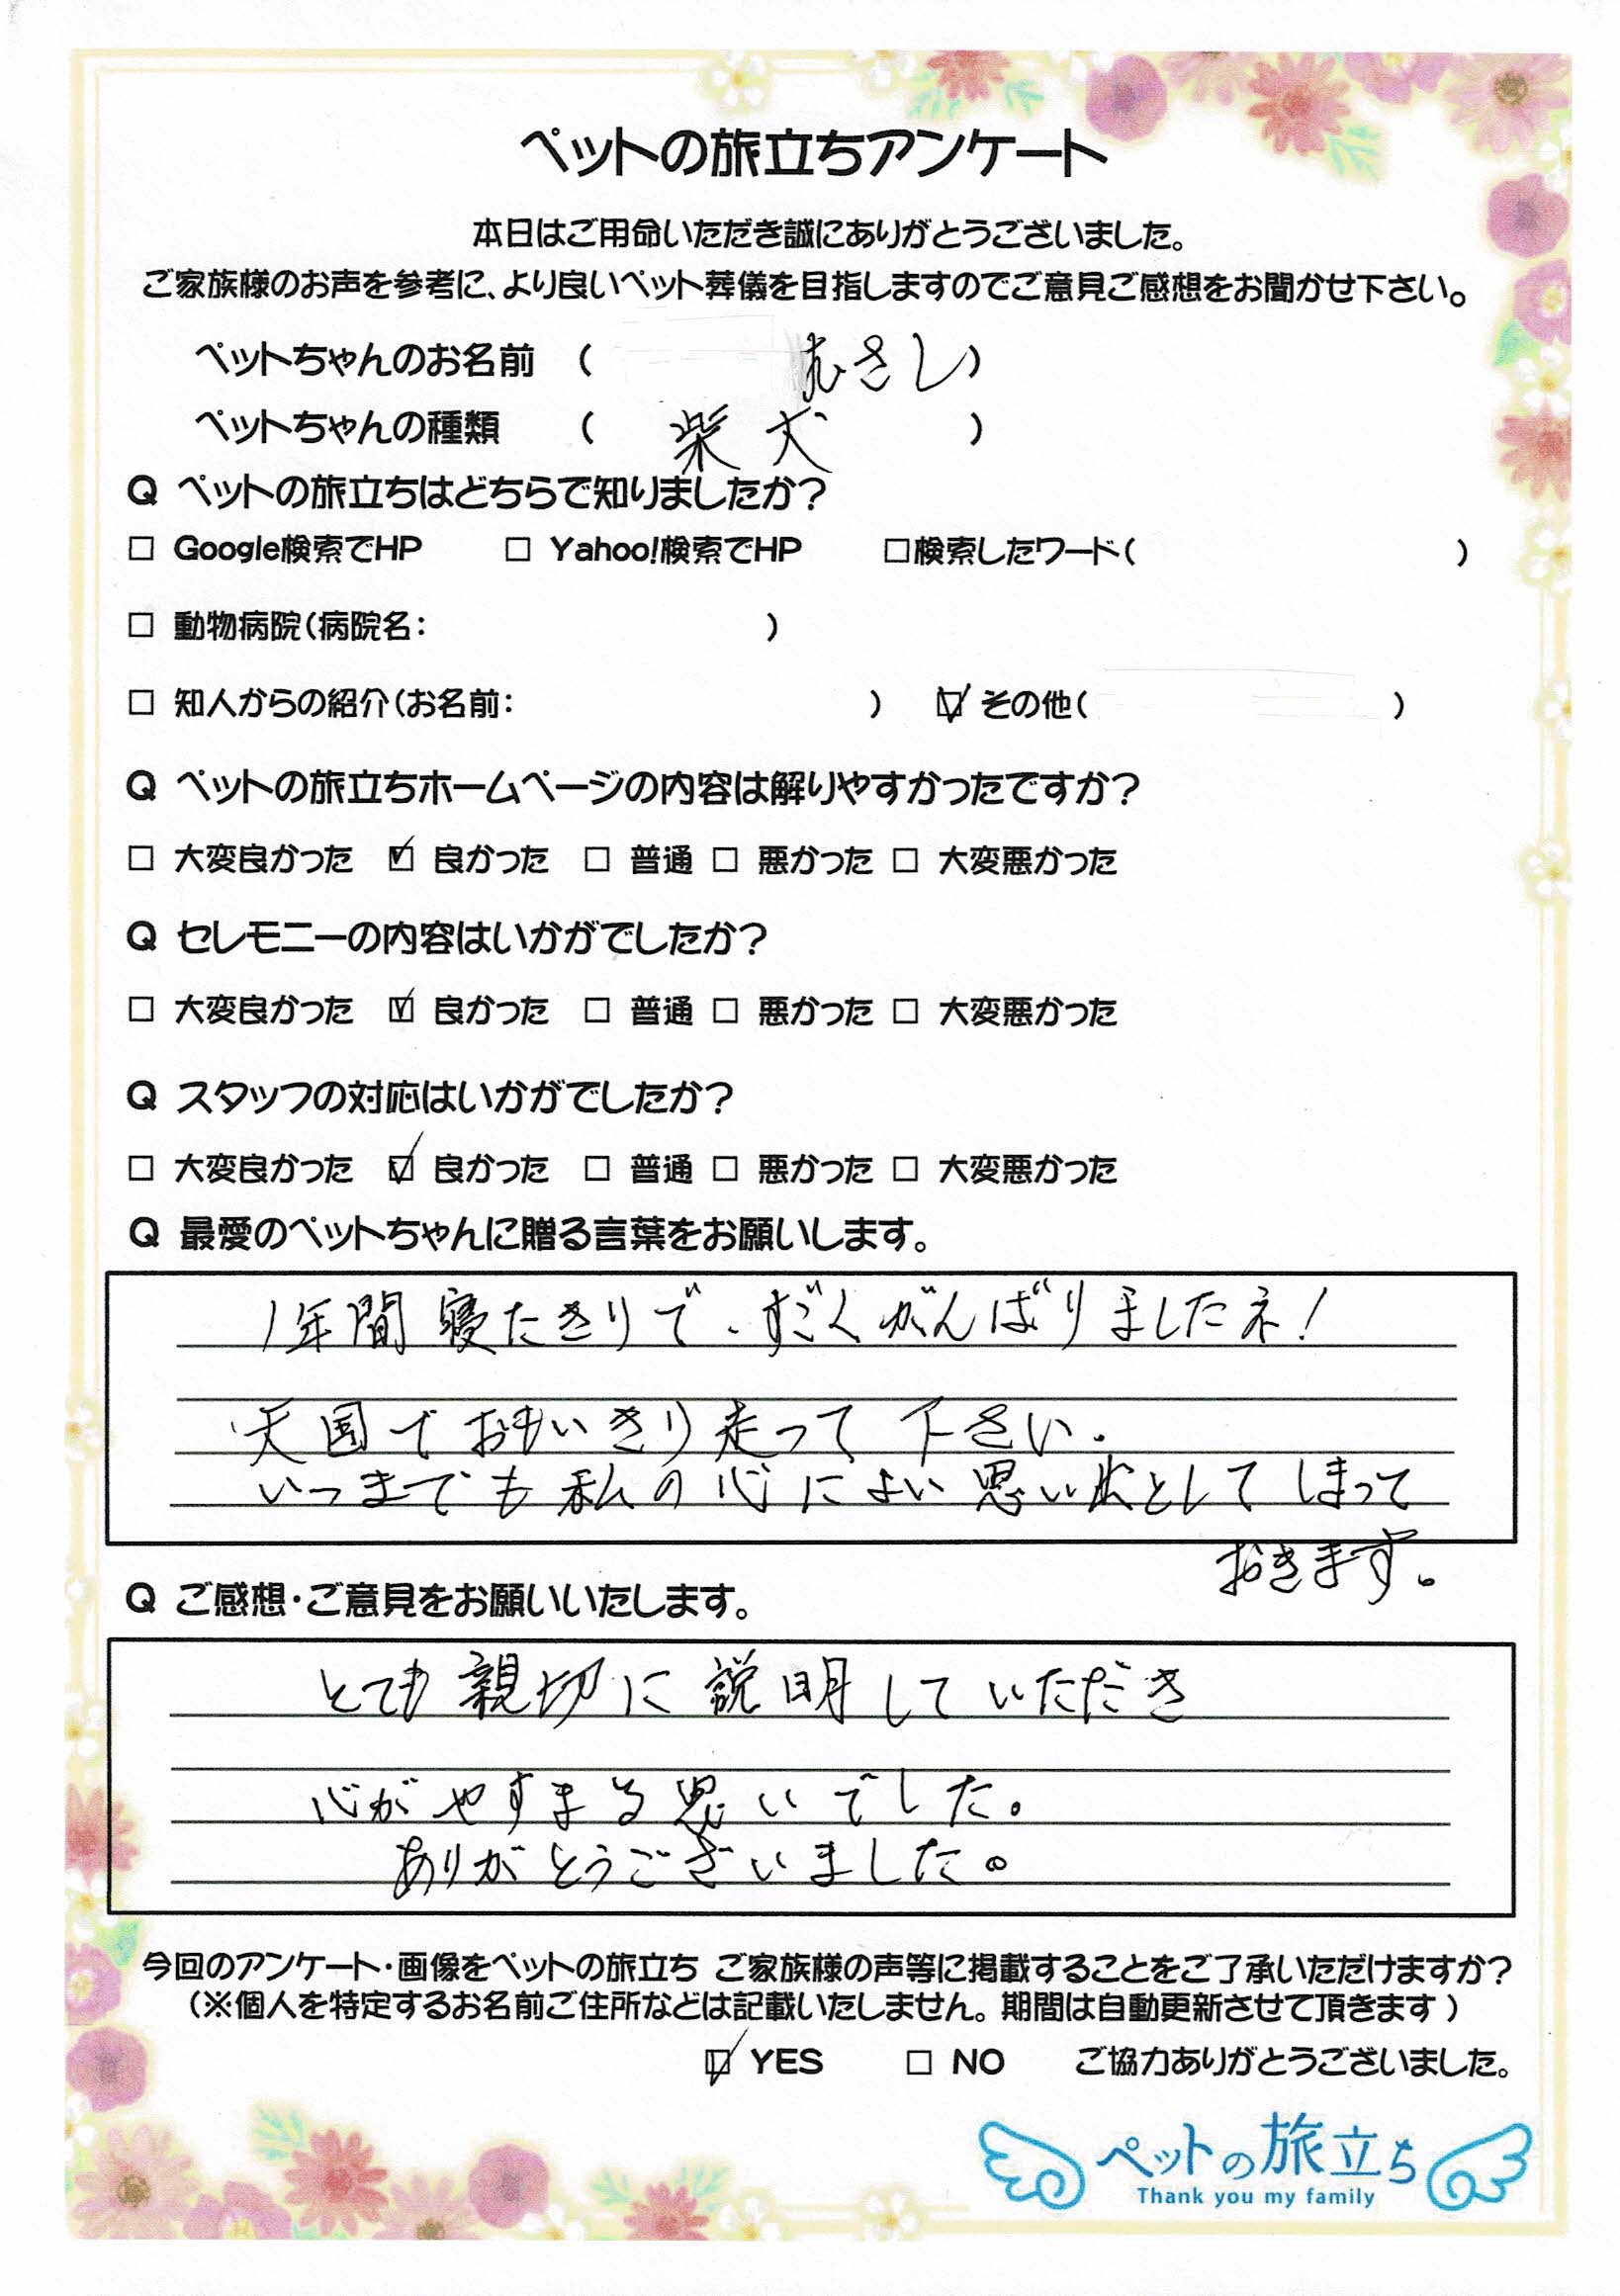 ペットの旅立ちアンケート
本日はご用命いただき誠にありがとうございました。
ご家族様のお声を参考に、より良いペット葬儀を目指しますのでご意見ご感想をお聞かせ下さい。
ペットちゃんのお名前 ( むさし)
ペットちゃんの種類 ( 柴犬 )
Q ペットの旅立ちはどちらで知りましたか?
□ Google検索でHP □ Yahoo!検索でHP □検索したワード( )
□ 動物病院(病院名: )
□ 知人からの紹介(お名前: ) ☑ その他( )
Q ペットの旅立ちホームページの内容は解りやすかったですか?
□ 大変良かった ☑ 良かった □ 普通 □ 悪かった □ 大変悪かった
Q セレモニーの内容はいかがでしたか?
□ 大変良かった ☑ 良かった □ 普通 □ 悪かった □ 大変悪かった
Q スタッフの対応はいかがでしたか?
□ 大変良かった ☑ 良かった □ 普通 □ 悪かった □ 大変悪かった
Q 最愛のペットちゃんに贈る言葉をお願いします。
1年間寝たきりで、すごくがんばりましたネ!
天国でおもいきり走って下さい.
いつまでも私の心によい思い出としてしまって
おきます。
Q ご感想・ご意見をお願いいたします。
とても親切に説明していただき
心がやすまる思いでした。
ありがとうございました。
今回のアンケート・画像をペットの旅立ち ご家族様の声等に掲載することをご了承いただけますか?
(※個人を特定するお名前ご住所などは記載いたしません。期間は自動更新させて頂きます)
☑ YES □ NO ご協力ありがとうございました。
ペットの旅立ち
Thank you my family